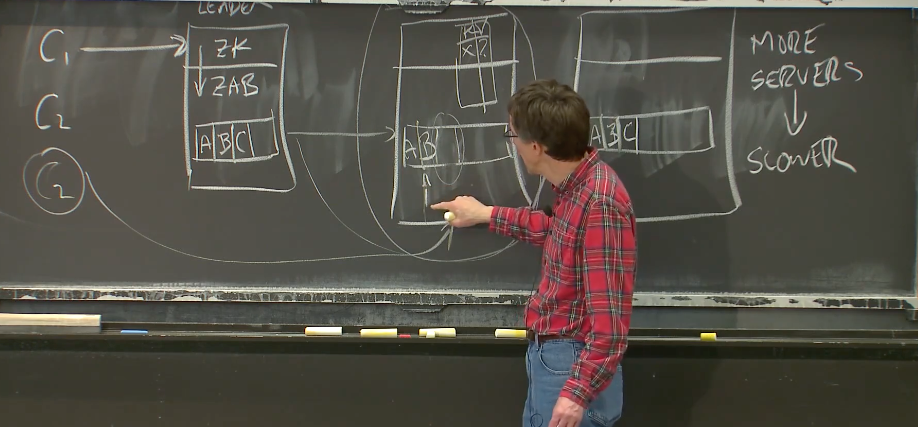 LEADER
C1
ZK
ZAB
A B C
C2
C2
KV
X 2
A B
A B C
MORE
SERVERS
SLOWER